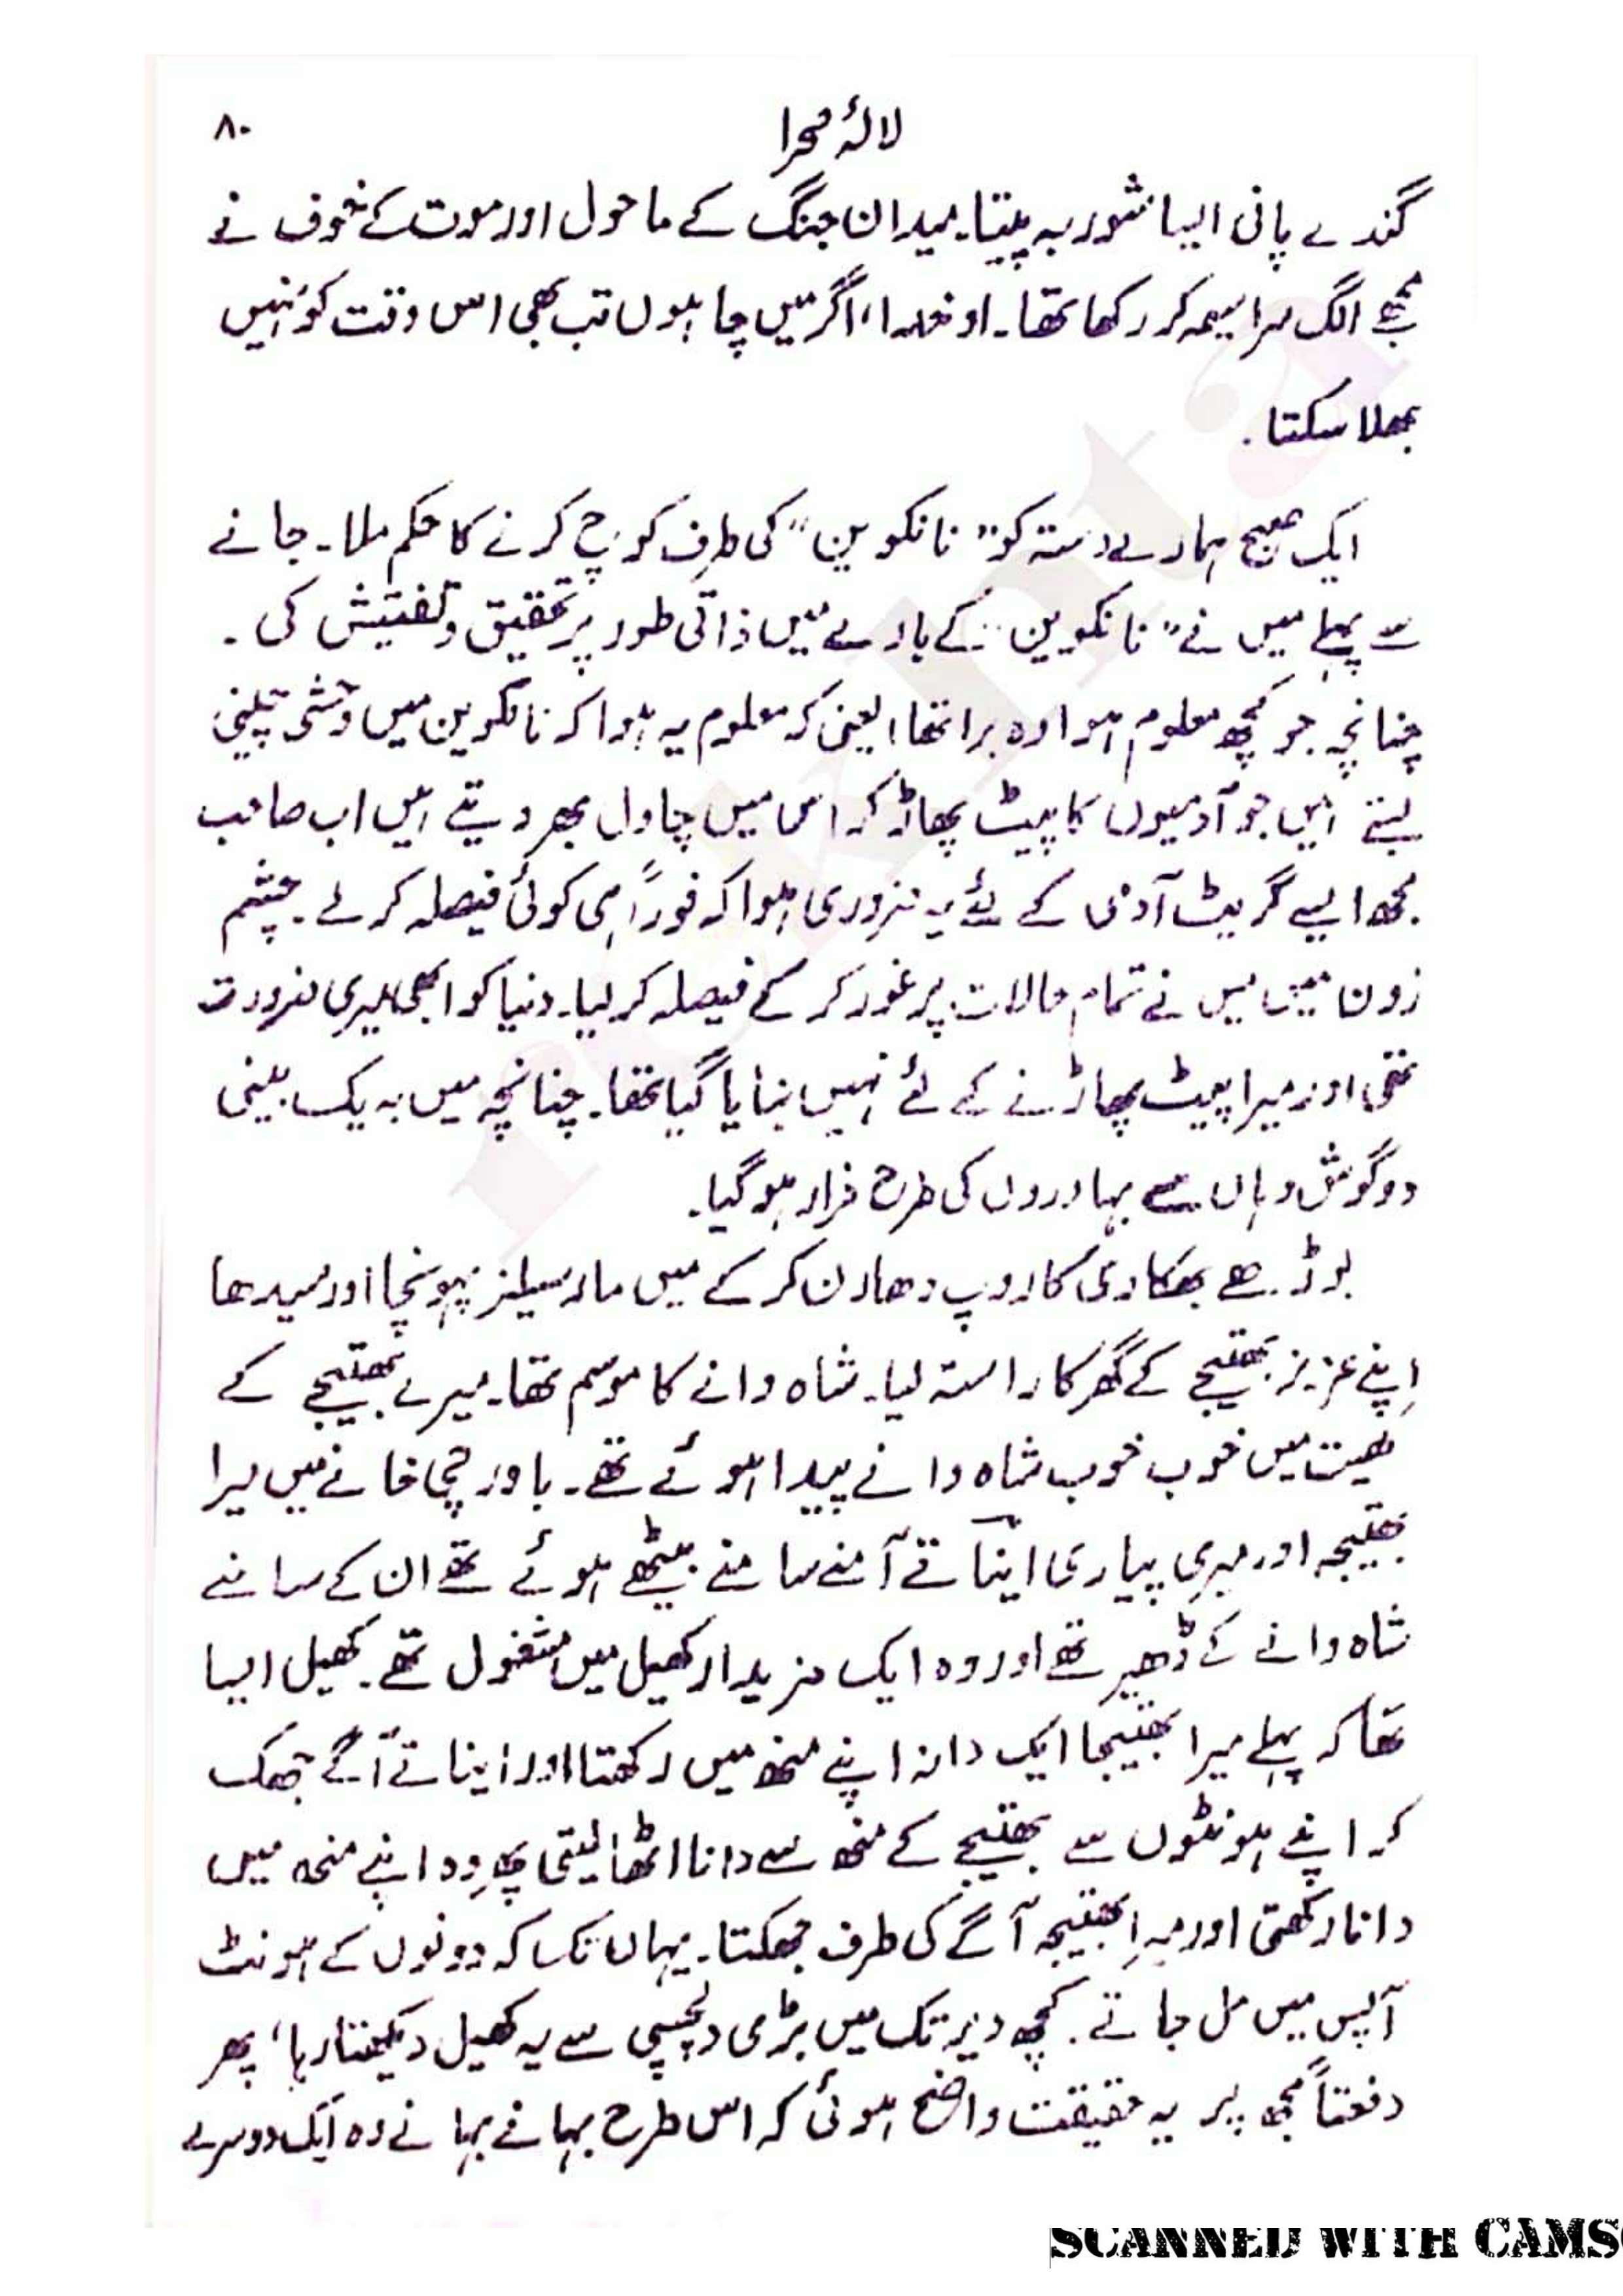 لالۂ صحرا
۸۰
گندے پانی ایسا شوربہ پیتا۔ میدان جنگ کے ماحول اور موت کے خوف نے
مجھے الگ سراسیمہ کر رکھا تھا۔ او خدا، اگر میں چاہوں تب بھی اس وقت کو نہیں
بھلا سکتا۔
ایک صبح ہمارے دستہ کو "نانکوین" کی طرف کوچ کرنے کا حکم ملا۔ جانے
سے پہلے میں نے "نانکوین" کے بارے میں ذاتی طور پر تحقیق و تفتیش کی۔
چنانچہ جو کچھ معلوم ہوا وہ برا تھا، یعنی کہ معلوم یہ ہوا کہ نانکوین میں وحشی چینی
بستے ہیں جو آدمیوں کا پیٹ پھاڑ کر اس میں چاول بھر دیتے ہیں اب صاحب
مجھ ایسے گریٹ آدمی کے لئے یہ ضروری ہوا کہ فوراً ہی کوئی فیصلہ کر لے۔ چشم
زدن میں میں نے تمام حالات پر غور کر کے فیصلہ کر لیا۔ دنیا کو ابھی میری ضرورت
تھی اور میرا پیٹ پھاڑنے کے لئے نہیں بنایا گیا تھا۔ چنانچہ میں بہ یک بینی
دو گوش وہاں سے بہادروں کی طرح فرار ہو گیا۔
بوڑھے بھکاری کا روپ دھارن کر کے میں مارسیلز پہونچا اور سیدھا
اپنے عزیز بھتیجے کے گھر کا راستہ لیا۔ شاہ دانے کا موسم تھا۔ میرے بھتیجے کے
کھیت میں خوب خوب شاہ دانے پیدا ہوئے تھے۔ باورچی خانے میں میرا
بھتیجہ اور میری پیاری اینا تے آمنے سامنے بیٹھے ہوئے تھے ان کے سامنے
شاہ دانے کے ڈھیر تھے اور وہ ایک مزیدار کھیل میں مشغول تھے۔ کھیل ایسا
تھا کہ پہلے میرا بھتیجا ایک دانہ اپنے منھ میں رکھتا اور اینا تے آگے جھک
کر اپنے ہونٹوں سے بھتیجے کے منھ سے دانا اٹھا لیتی پھر وہ اپنے منھ میں
دانا رکھتی اور میرا بھتیجہ آگے کی طرف جھکتا۔ یہاں تک کہ دونوں کے ہونٹ
آپس میں مل جاتے۔ کچھ دیر تک میں بڑی دلچسپی سے یہ کھیل دیکھتا رہا، پھر
دفعتاً مجھ پر یہ حقیقت واضح ہوئی کہ اس طرح بہانے بہانے وہ ایک دوسرے
rekhta
SCANNED WITH CAMS